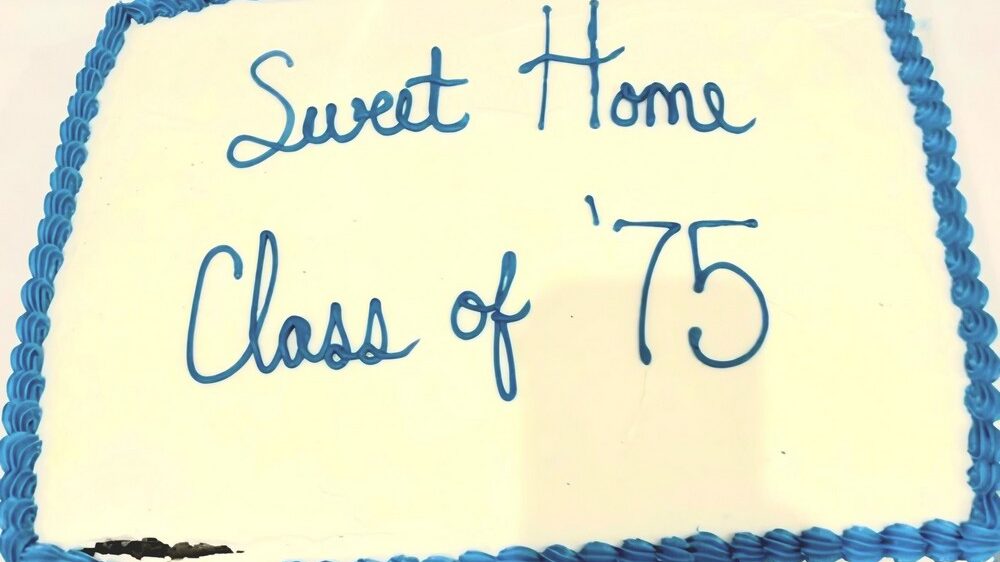 Sweet Home
Class of '75